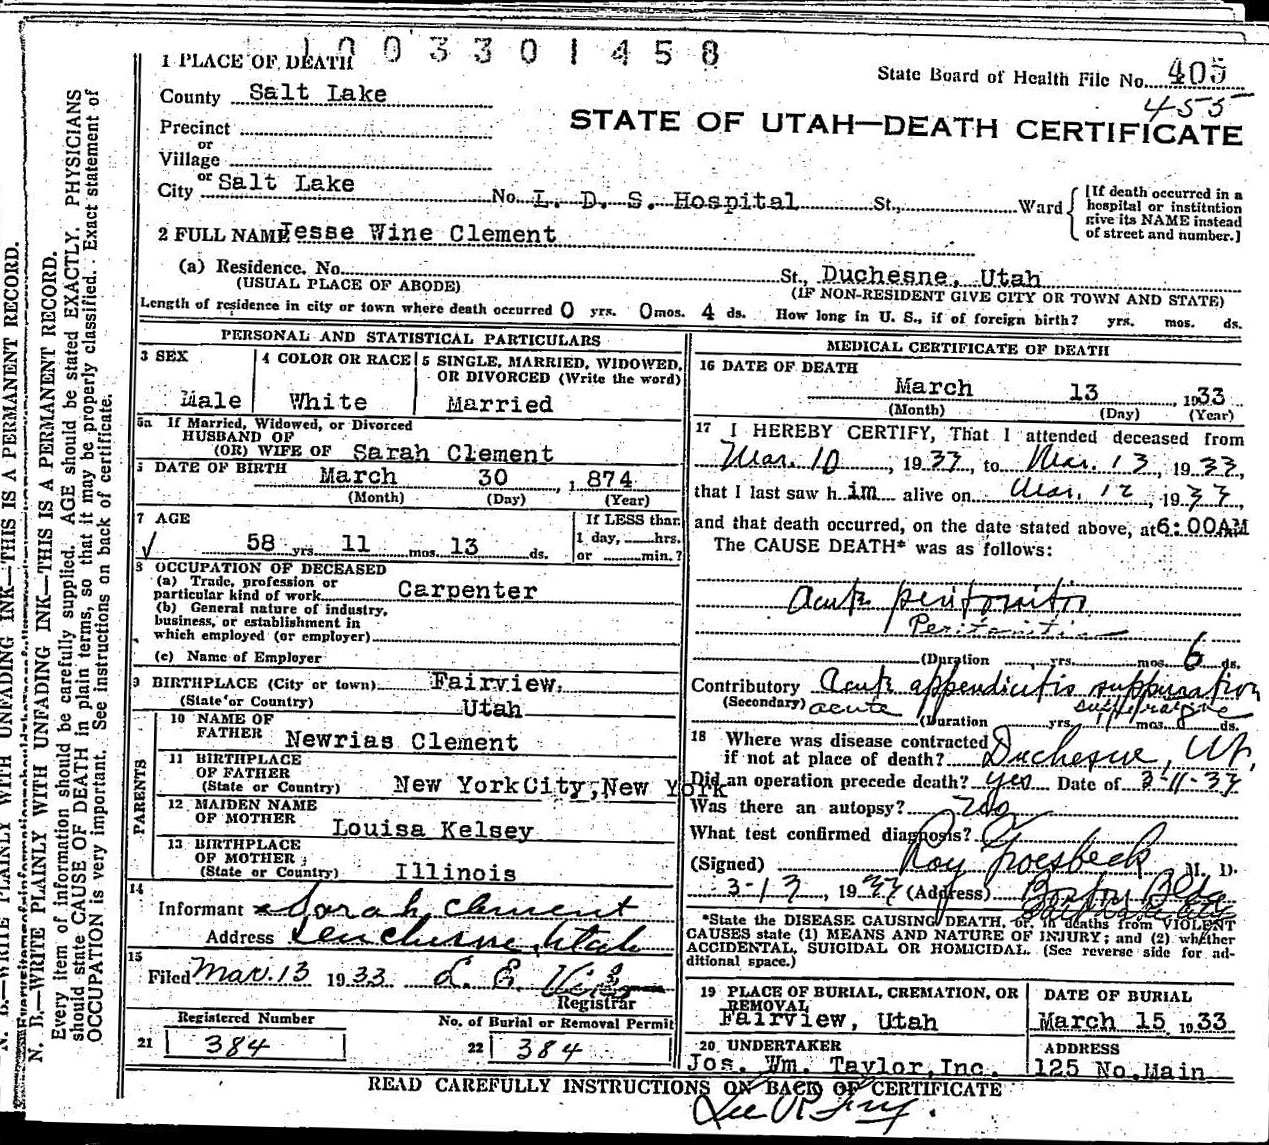 1003301458
1 PLACE OF DEATH
State Board of Health File No. 405
455
County Salt Lake
STATE OF UTAH—DEATH CERTIFICATE
Precinct
or
Village
or
City Salt Lake No. L. D. S. Hospital St., Ward
[If death occurred in a hospital or institution give its NAME instead of street and number.]
2 FULL NAME Jesse Wine Clement
(a) Residence. No. St., Duchesne, Utah
(USUAL PLACE OF ABODE) (IF NON-RESIDENT GIVE CITY OR TOWN AND STATE)
Length of residence in city or town where death occurred 0 yrs. 0 mos. 4 ds. How long in U. S., if of foreign birth? yrs. mos. ds.
PERSONAL AND STATISTICAL PARTICULARS
3 SEX
Male
4 COLOR OR RACE
White
5 SINGLE, MARRIED, WIDOWED,
OR DIVORCED (Write the word)
Married
5a If Married, Widowed, or Divorced
HUSBAND OF
(OR) WIFE OF Sarah Clement
DATE OF BIRTH March 30, 1874
(Month) (Day) (Year)
7 AGE
58 yrs 11 mos. 13 ds.
If LESS than
1 day, hrs.
or min.?
8 OCCUPATION OF DECEASED
(a) Trade, profession or
particular kind of work Carpenter
(b) General nature of industry,
business, or establishment in
which employed (or employer)
(c) Name of Employer
9 BIRTHPLACE (City or town) Fairview,
(State or Country) Utah
PARENTS
10 NAME OF
FATHER Newrias Clement
11 BIRTHPLACE
OF FATHER
(State or Country) New York City, New York
12 MAIDEN NAME
OF MOTHER Louisa Kelsey
13 BIRTHPLACE
OF MOTHER
(State or Country) Illinois
14
Informant Sarah Clement
Address Duchesne, Utah
15
Filed Mar. 13 1933 L. E.
Registrar
Registered Number
21 384
No. of Burial or Removal Permit
22 384
MEDICAL CERTIFICATE OF DEATH
16 DATE OF DEATH
March 13, 1933
(Month) (Day) (Year)
17 I HEREBY CERTIFY, That I attended deceased from
Mar. 10, 1933, to Mar. 13, 1933,
that I last saw him alive on Mar. 12, 1933
and that death occurred, on the date stated above, at 6:00AM
The CAUSE DEATH* was as follows:
Acute peritonitis
Peritonitis
(Duration yrs. mos. 6 ds.
Contributory Acute appendicitis suppuration
(Secondary) acute
(Duration yrs. mos. ds.
18 Where was disease contracted
if not at place of death? Duchesne, Ut.
Did an operation precede death? yes Date of 3-11-33
Was there an autopsy? no
What test confirmed diagnosis?
(Signed) Roy Groesbeck M. D.
3-13, 1933 (Address) Boston Bldg
*State the DISEASE CAUSING DEATH, or, in deaths from VIOLENT
CAUSES state (1) MEANS AND NATURE OF INJURY; and (2) whether
ACCIDENTAL, SUICIDAL OR HOMICIDAL. (See reverse side for ad-
ditional space.)
19 PLACE OF BURIAL, CREMATION, OR
REMOVAL
Fairview, Utah
DATE OF BURIAL
March 15 1933
20 UNDERTAKER
Jos. Wm. Taylor, Inc.
ADDRESS
125 No. Main
READ CAREFULLY INSTRUCTIONS ON BACK OF CERTIFICATE
N. B.—WRITE PLAINLY WITH UNFADING INK—THIS IS A PERMANENT RECORD.
Every item of information should be carefully supplied. AGE should be stated EXACTLY. PHYSICIANS
should state CAUSE OF DEATH in plain terms, so that it may be properly classified. Exact statement of
OCCUPATION is very important. See instructions on back of certificate.